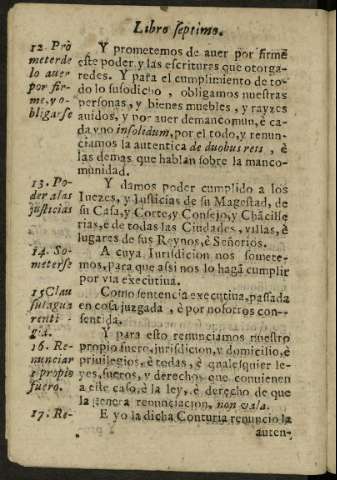 Libro septimo.
12. Pro
meterde
lo auer
por fir-
me, y o-
bligarse
Y prometemos de auer por firme
este poder, y las escrituras que otorga-
redes. Y para el cumplimiento de to-
do lo susodicho, obligamos nuestras
personas, y bienes muebles, y rayzes
auidos, y por auer demancomun, è ca-
da vno insolidum, por el todo, y renun-
ciamos la autentica de duobus reis, è
las demas que hablan sobre la manco-
munidad.
13. Po-
der alas
justicias
Y damos poder cumplido a los
Iuezes, y Iusticias de su Magestad, de
su Casa, y Corte, y Consejo, y Chãcille
rias, e de todas las Ciudades, villas, è
lugares de sus Reynos, è Señorios.
14. So-
meterse
A cuya Iurisdicion nos somete-
mos, para que assi nos lo hagã cumplir
por via executiua.
15 Clau
sulagua
renti-
gia.
Como sentencia executiua, passada
en cosa juzgada, è por nosotros con-
sentida.
16. Re-
nunciar
el propio
fuero.
Y para esto renunciamos nuestro
propio fuero, jurisdicion, y domicilio, è
priuilegios, è todas, è qualesquier le-
yes, fueros, y derechos que conuienen
a este caso, è la ley, è derecho de que
la genera renunciacion, non vala.
17. Re-
E yo la dicha Conturia renuncio la
auten-